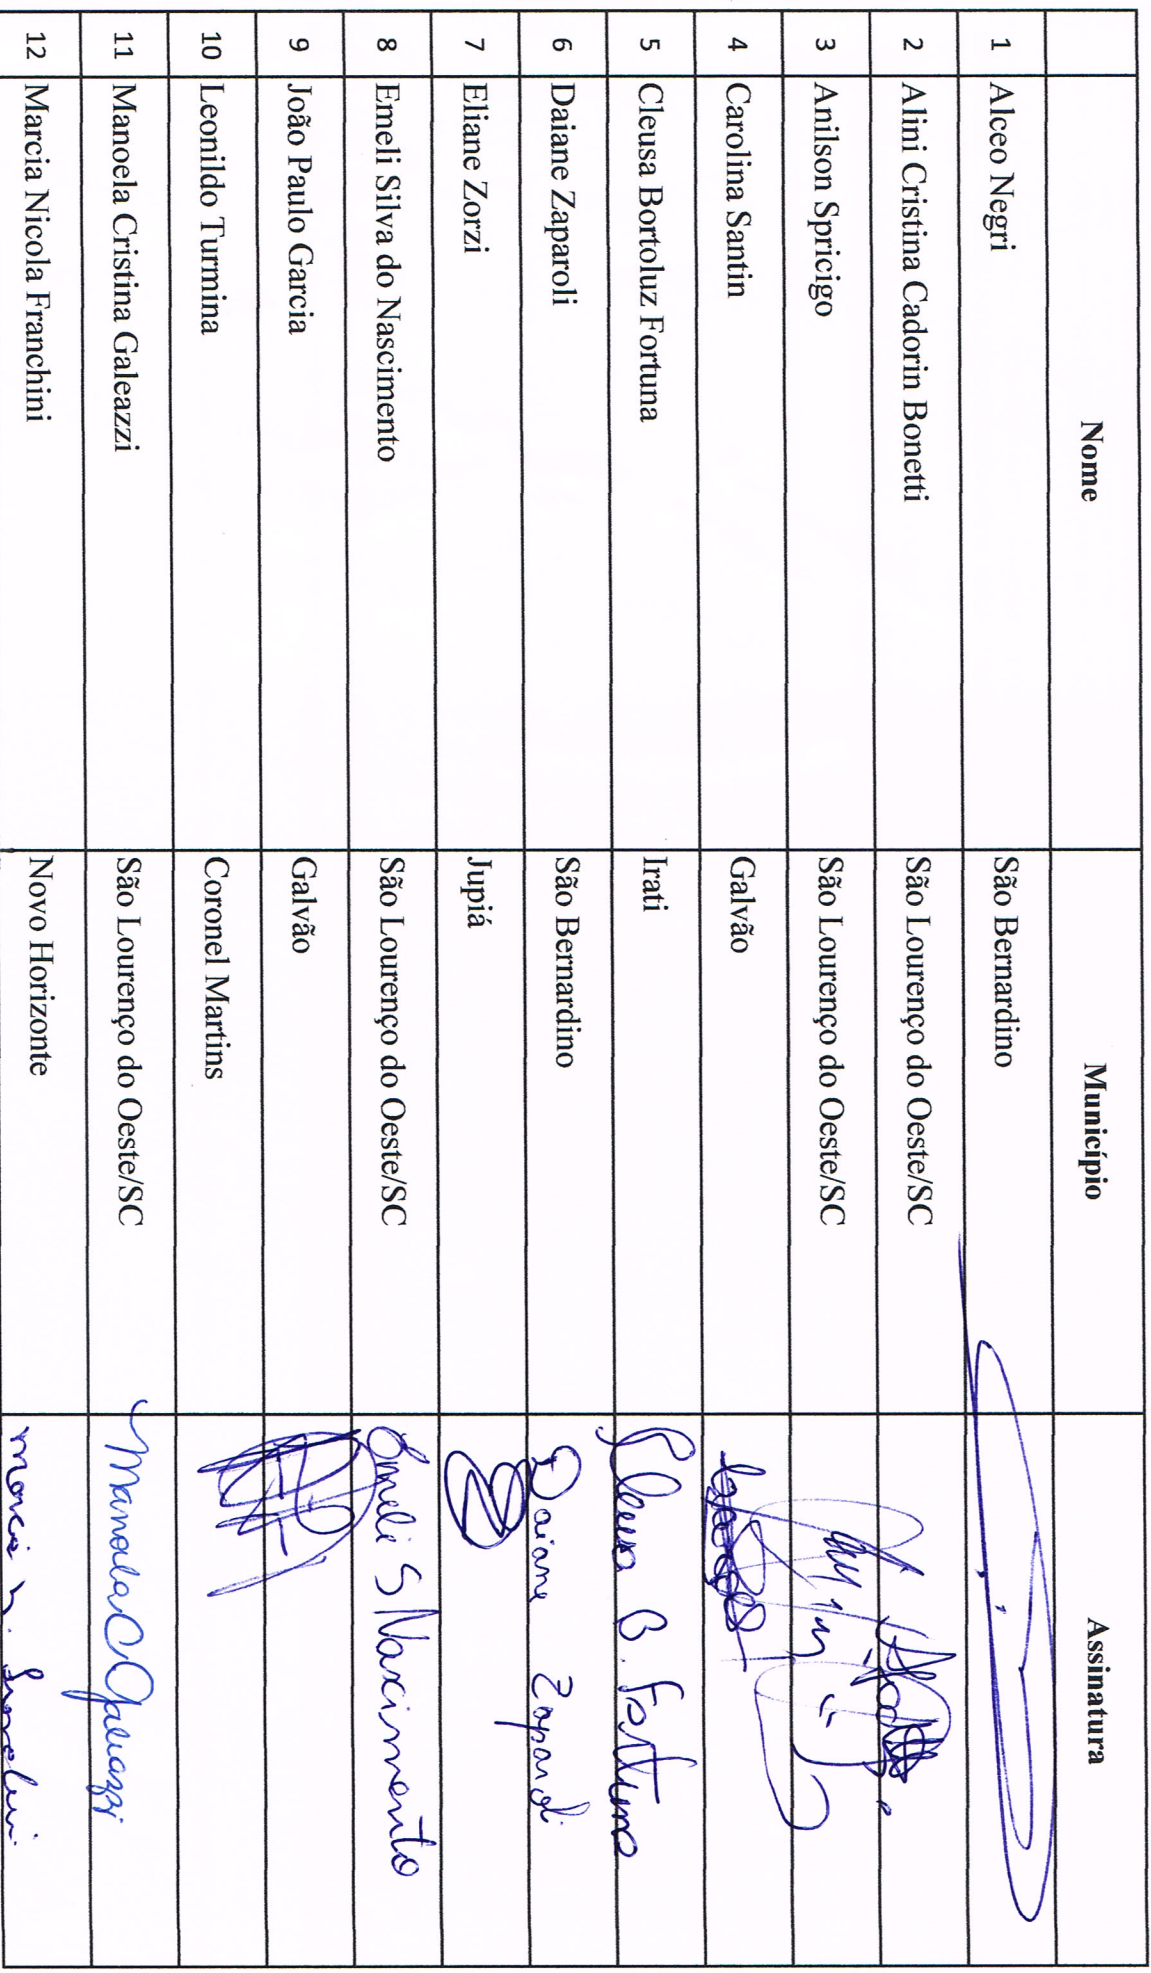 Nome Município Assinatura
1 Alceo Negri São Bernardino
2 Alini Cristina Cadorin Bonetti São Lourenço do Oeste/SC
3 Anilson Spricigo São Lourenço do Oeste/SC
4 Carolina Santin Galvão
5 Cleusa Bortoluz Fortuna Irati Cleusa B. Fortuna
6 Daiane Zaparoli São Bernardino Daiane Zaparoli
7 Eliane Zorzi Jupiá
8 Emeli Silva do Nascimento São Lourenço do Oeste/SC Emeli S Nascimento
9 João Paulo Garcia Galvão
10 Leonildo Turmina Coronel Martins
11 Manoela Cristina Galeazzi São Lourenço do Oeste/SC Manoela C Galeazzi
12 Marcia Nicola Franchini Novo Horizonte Marcia N. Franchini